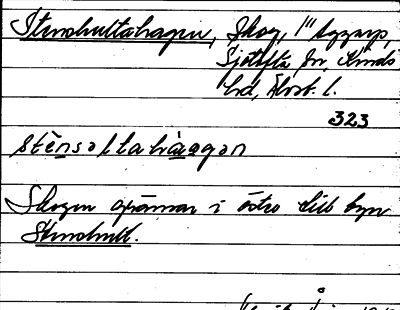 Stenshultahagen, Skog, 1" Aggarp,
Sjötofta sn, Kinds
hd, Älvsb. l.
323
stènsaltahàːagan
Skogen gränsar i öster till byn
Stenshult.